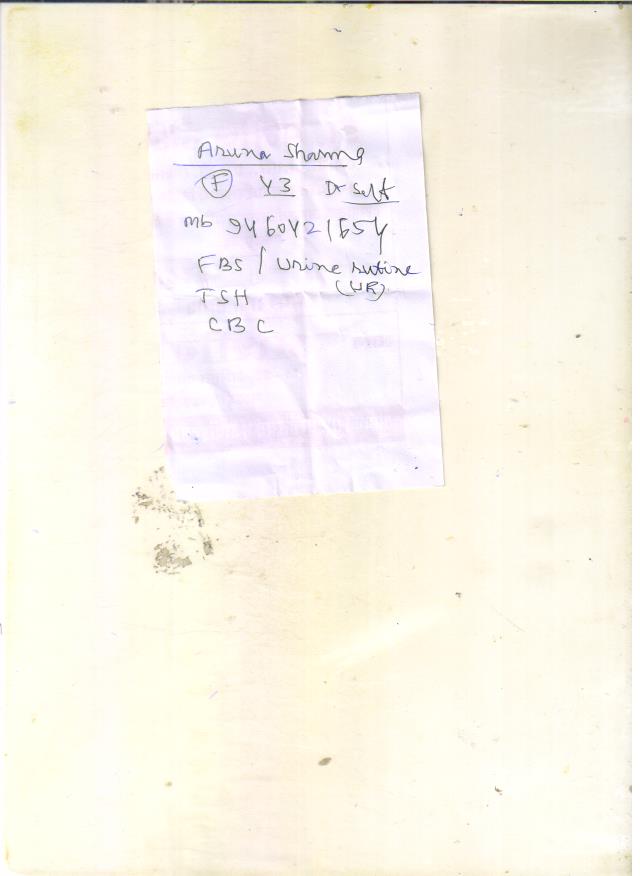 Aruna Sharma
(F) 43 Dr Self
mb 9460421654
FBS / Urine rutine
TSH (UR)
CBC